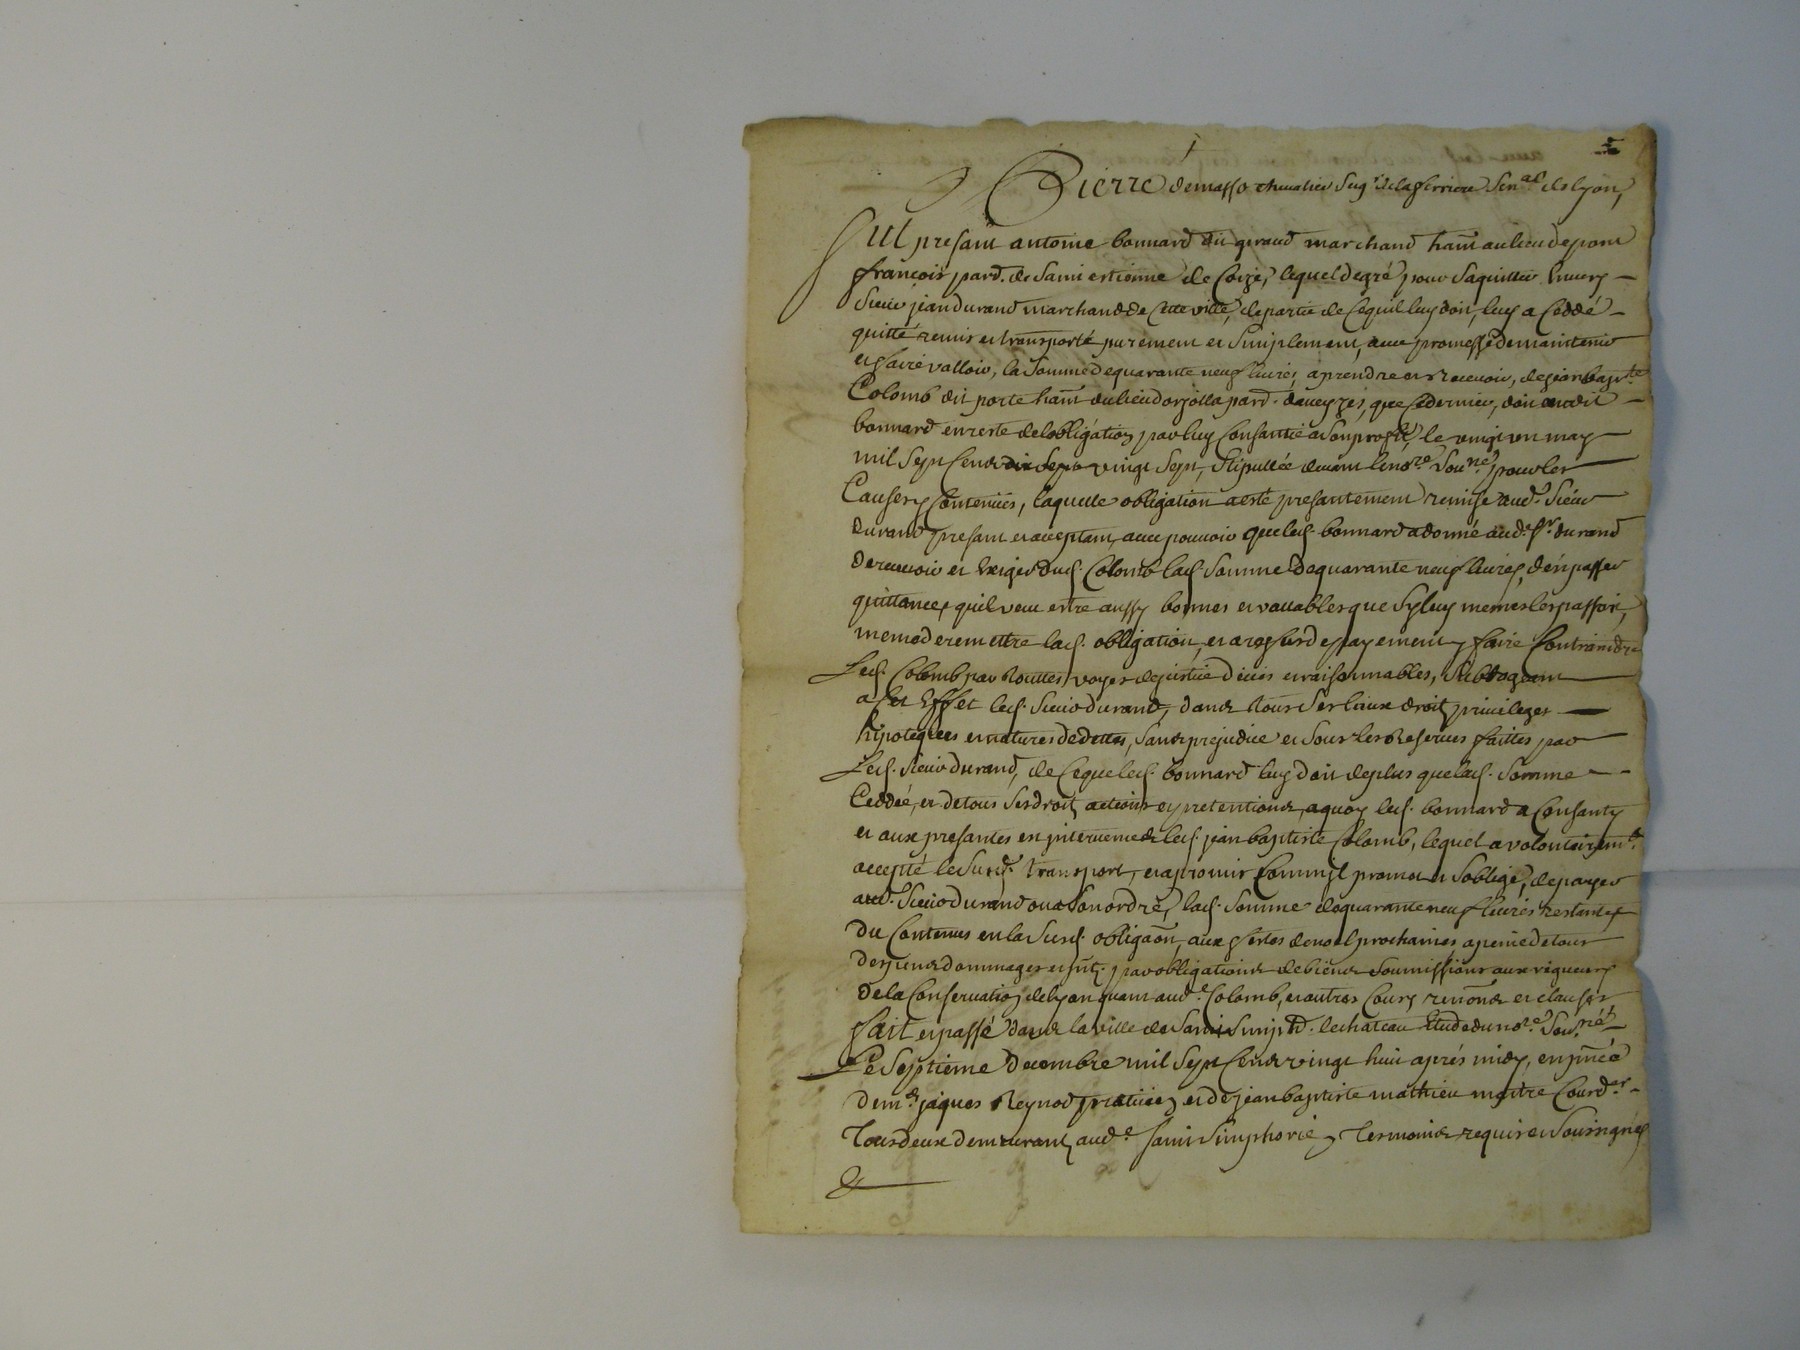 Pierre demasso chevalier seigr. de la ferriere senal. de lyon,
fut presant antoine bonnard dit geraud marchand hant. au lieu de pont
françois, pard. de saint estienne de Coize, lequel de gré pour saquitter Envers
sieur jean durand marchand de Cette ville, de partie de Ce quil luy doit, luy a Ceddé
quitté remis et transporté purement et simplement, avec promesse de maintenir
et faire valloir, la somme de quarante neuf livres, a prendre et recevoir, de jean bapte.
Colomb dit porte hant. du lieu dorjolla pard. daveyzes, que Ce dernier, doit audit
bonnard en reste de lobligation par luy Consantie a son profit, le vingt un may
mil sept Cends vingt sept, stipullée devant le nore. souné. pour les
Causes y Contenües, laquelle obligation a esté presantement remise aud. sieur
durand presant et acceptant, avec pouvoir que led. bonnard a donné aud. sr. durand
de recevoir et Exiger dud. Colomb lad. somme de quarante neuf livres, den passer
quittances quil veut estre aussy bonnes et vallables que sy luy memes les passoit,
meme de remettre lad. obligation, et a reffus de payement y faire Contraindre
Led. Colomb par touttes voyes de justice dües et raisonnables, subrogeant
a Cet Effet led. sieur durand, dans tous ses lieux droits privileges
hipoteques et natures de dettes, sans prejudice et sous les reserves faittes par
Led. sieur durand, de Ce que led. bonnard luy doit de plus que lad. somme
Ceddée, et de tous ses droits actions et pretentions, a quoy led. bonnard a Consanty
et aux presantes est intervenu led. jean baptiste Colomb, lequel a volontairemt.
accepté le susd. transport, et a promis Comme il promet et soblige, de payer
aud. sieur durand ou a son ordre, lad. somme de quarante neuf livres restantes
du Contenus en la susd. obligaon, aux festes de noel prochaines a peine de tous
despens dommages et intt. par obligations de biens soumissions aux rigueurs
de la Conservation de lyon quant aud. Colomb, et autres Cours renons et clauses
fait et passé dans la ville de saint simphd. le chateau Etude du nore. souné.
Le septieme decembre mil sept Cends vingt huit aprés midy, en pnce
de me. jaques Reynod praticien et de jean baptiste mathieu maitre Courder.
Tous deux demeurants aud. saint simphorien Tesmoins requis et soussignés